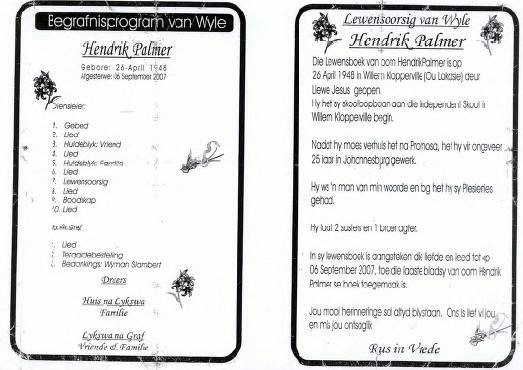 Begrafnisprogram van Wyle
Hendrik Palmer
Gebore: 26-April 1948
Afgesterwe: 06 September 2007
Diensleier:
1. Gebed
2. Lied
3. Huldeblyk: Vriend
4. Lied
5. Huldeblyk: Familie
6. Lied
7. Lewensoorsig
8. Lied
9. Boodskap
10. Lied
1. Lied
2. Teraardebestelling
3. Bedankings: Wyman Slambert
Draers
Huis na Lykswa
Familie
Lykswa na Graf
Vriende & Familie
Lewensoorsig van Wyle
Hendrik Palmer
Die Lewensboek van oom HendrikPalmer is op
26 April 1948 in Willem Klopperville (Ou Lokasie) deur
Liewe Jesus geopen.
Hy het sy skoolloopbaan aan die Independent Skool in
Willem Kloppeville begin.
Nadat hy moes verhuis het na Pronosa, het hy vir ongeveer
25 jaar in Johannesburg gewerk.
Hy ws 'n man van min woorde en og het hy sy Plesieries
gehad.
Hy laat 2 susters en 1 broer agter.
In sy lewensboek is aangeteken dik liefde en leed tot op
06 September 2007, toe die laaste bladsy van oom Hendrik
Palmer se boek toegemaak is.
Jou mooi herinneringe sal altyd blystaan. Ons is lief vi jou
en mis jou ontsaglik
Rus in Vrede